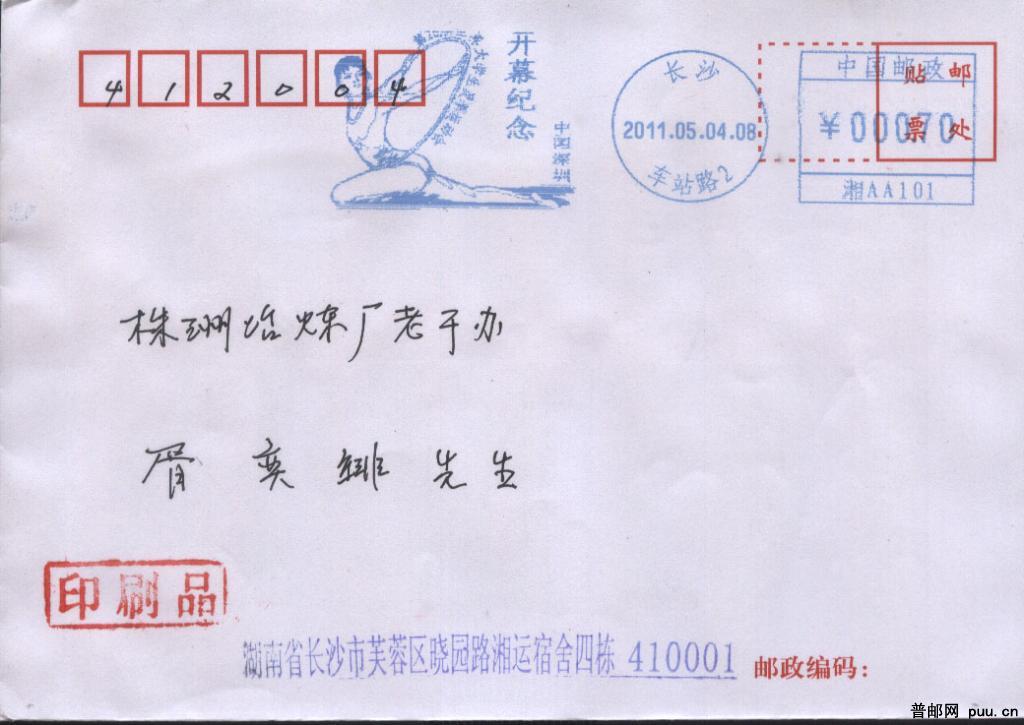 412004
开幕纪念
中国湘潭
长沙
2011.05.04.08
车站路2
中国邮政
¥00070
湘AA101
贴邮
票处
株洲冶炼厂老干办
胥奕雄先生
印刷品
湖南省长沙市芙蓉区晓园路湘运宿舍四栋 410001
邮政编码：
普邮网 puu.cn